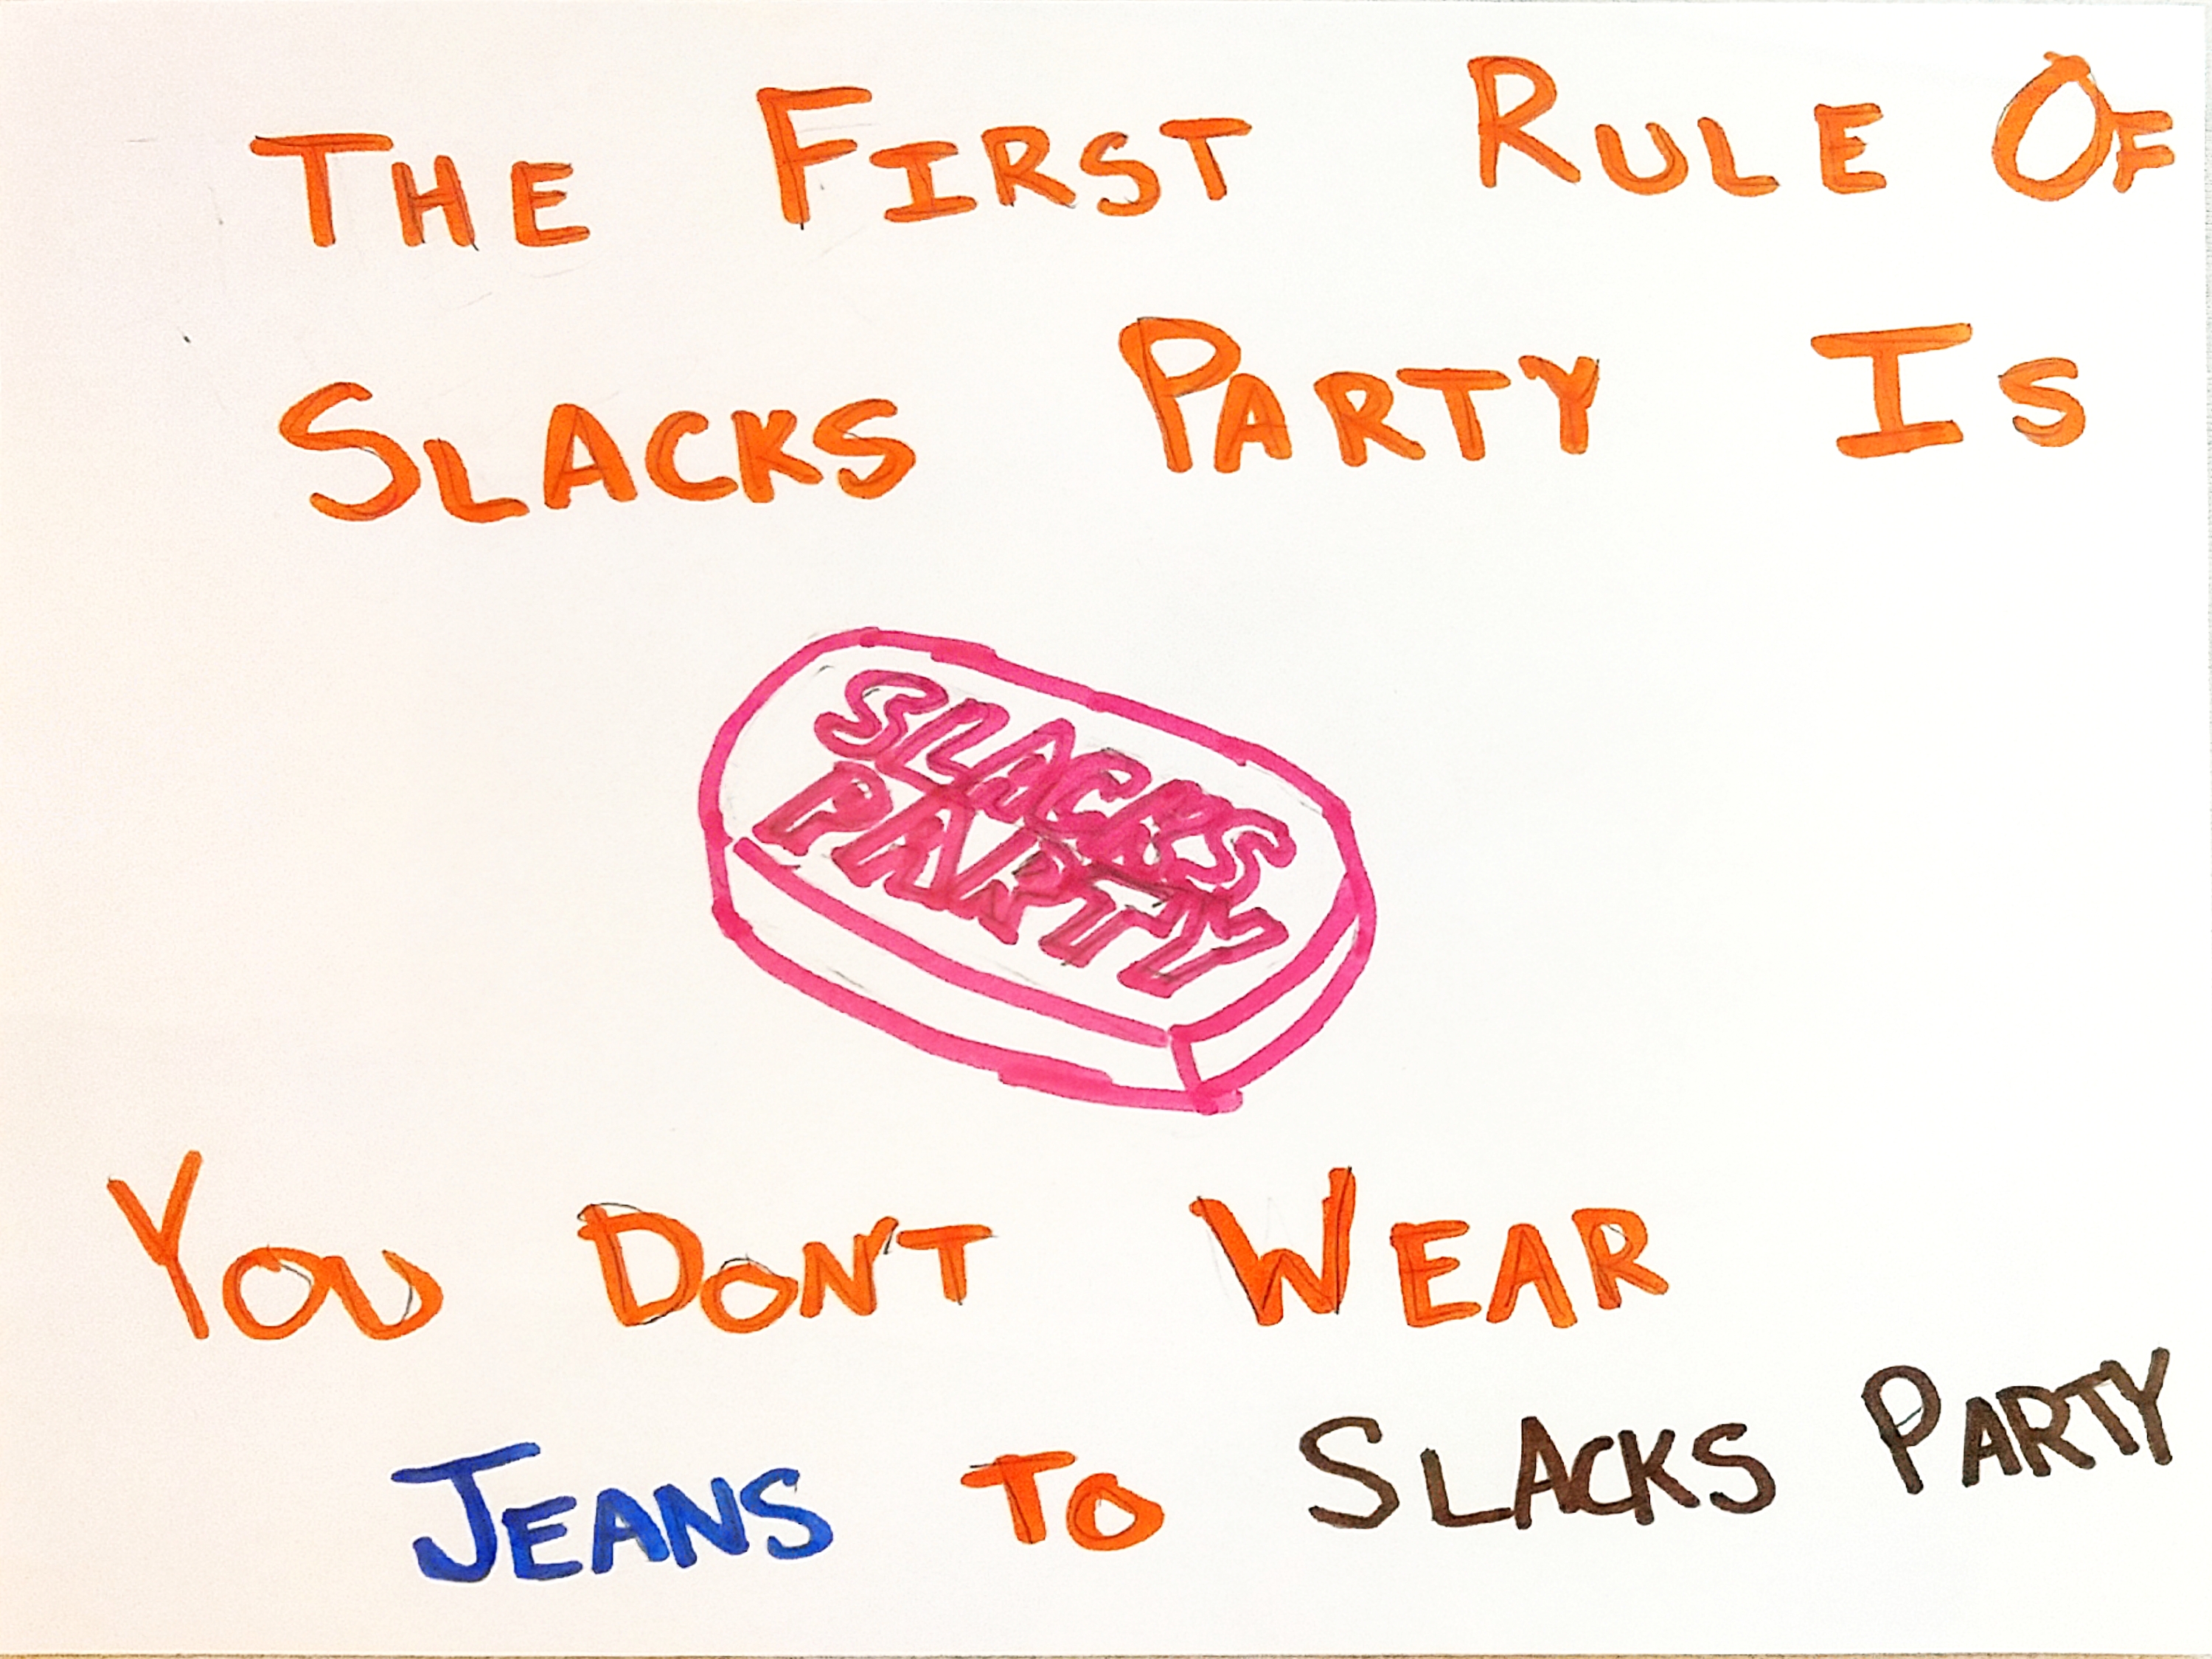 The First Rule Of
Slacks Party Is
SLACKS
PARTY
You Don't Wear
Jeans To Slacks Party